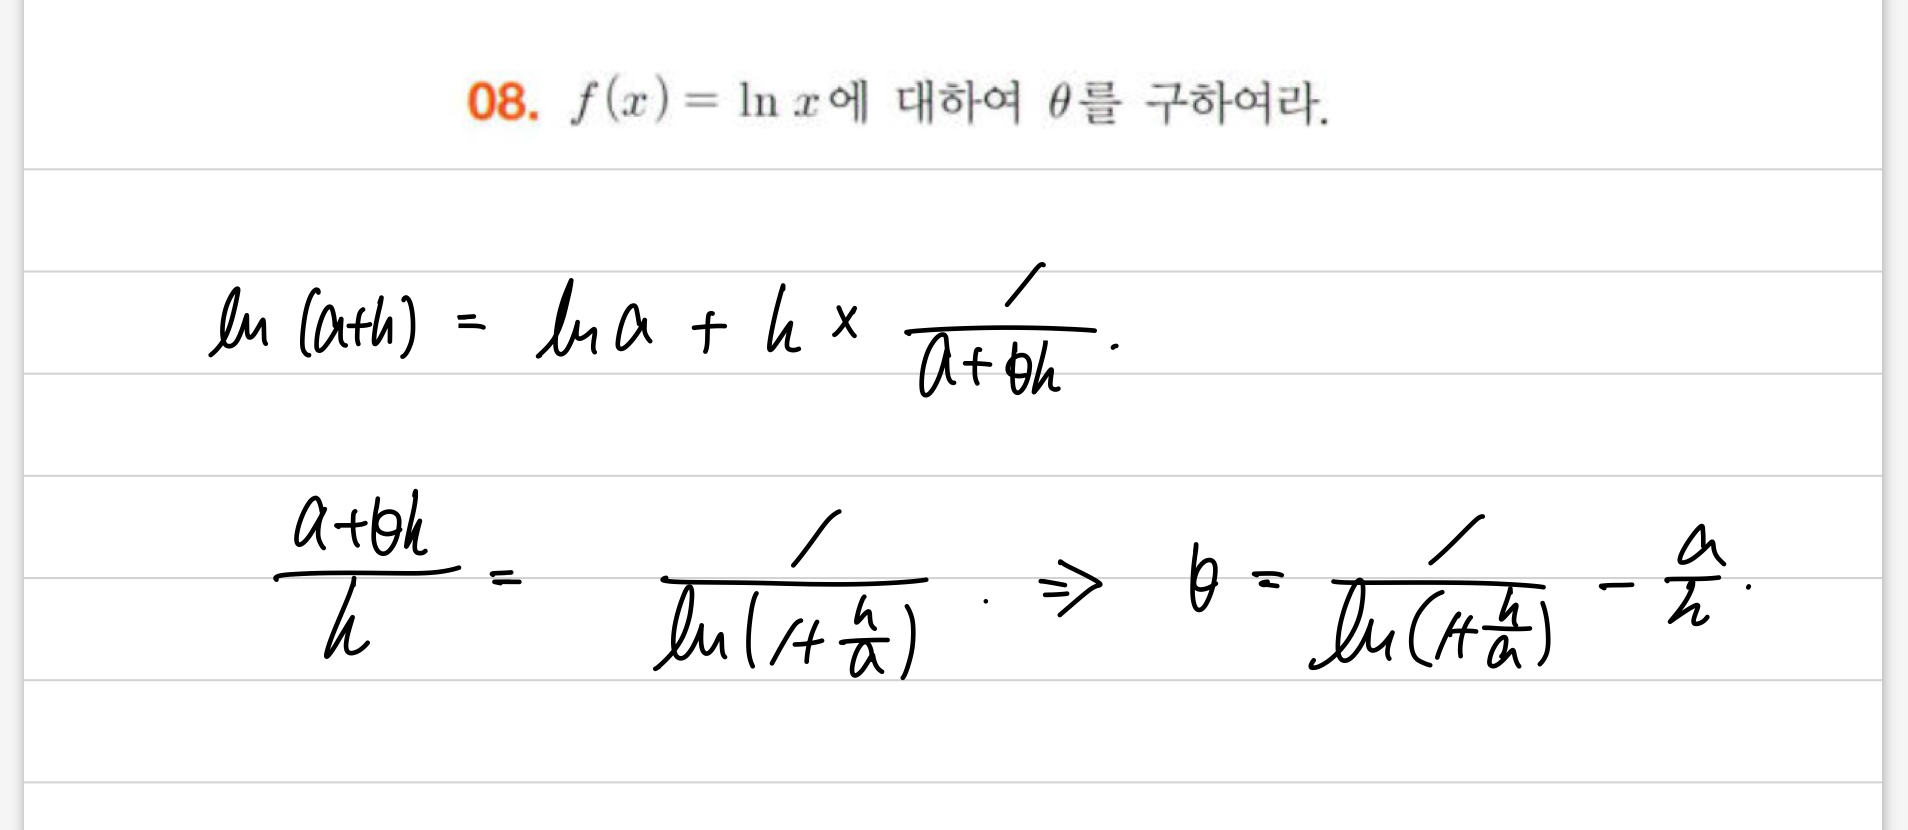 08. f(x) = ln x에 대하여 θ를 구하여라.
ln (a+h) = ln a + h × 1/(a+θh).
(a+θh)/h = 1/ln(1+h/a). ⇒ θ = 1/ln(1+h/a) - a/h.